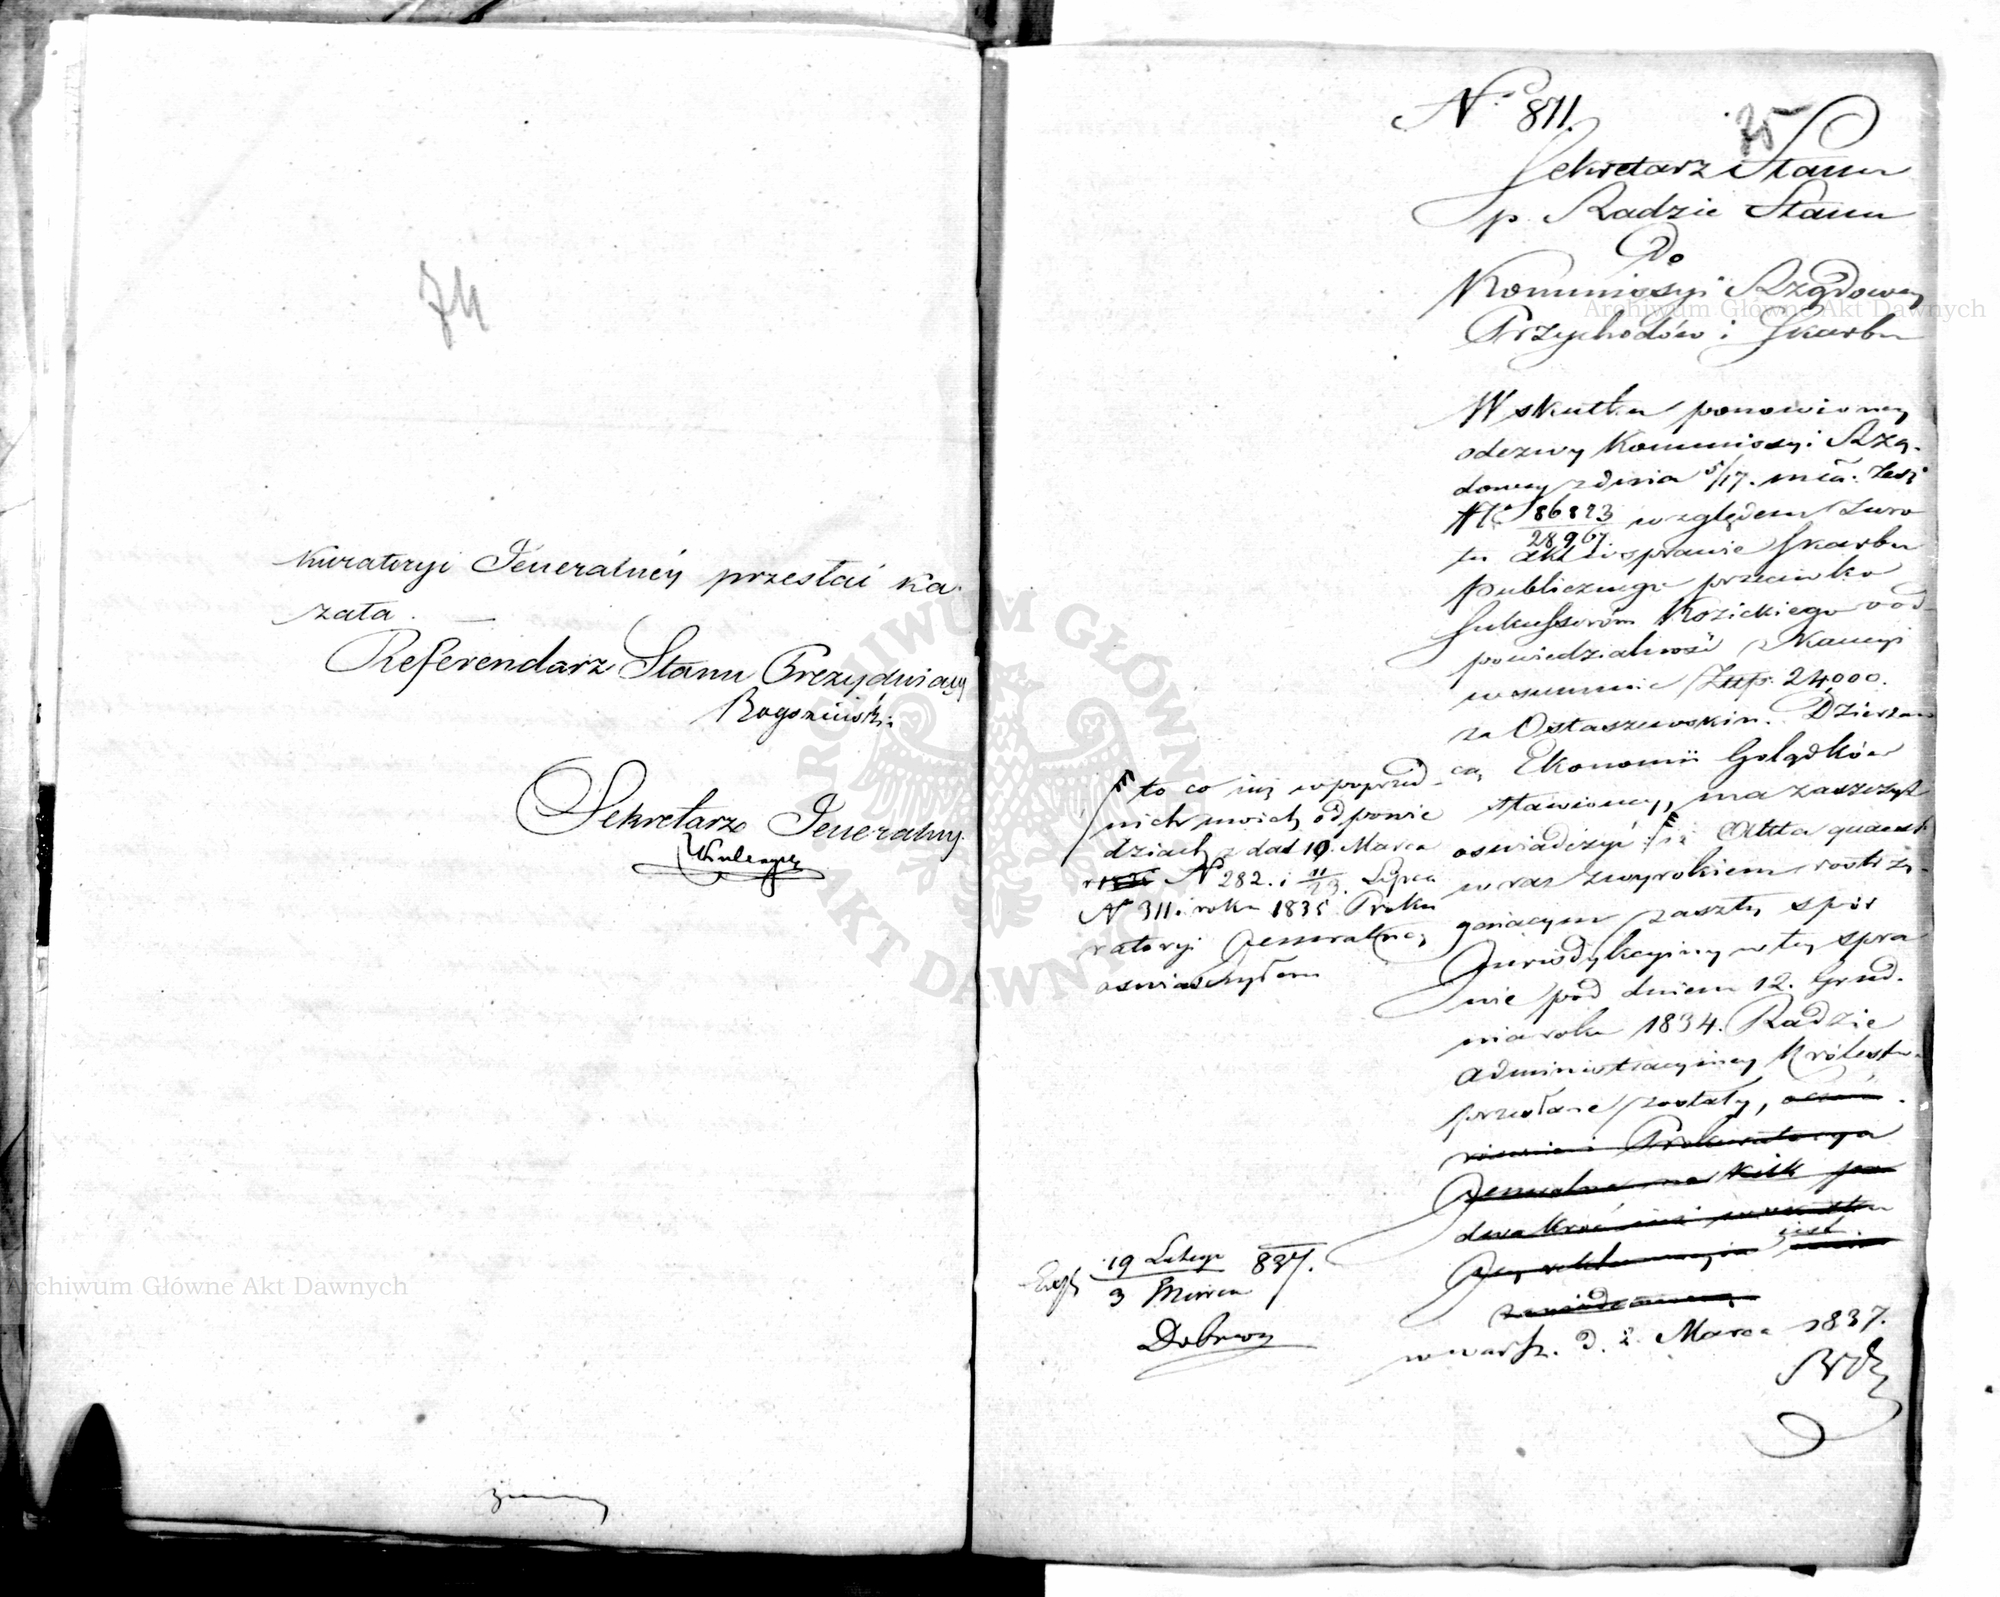 74
kuratoryi Jeneralnéy przesłać ka
zała.
Referendarz Stanu Prezyduiący
Sekretarz Jeneralny
No 811.
75
Sekretarz Stanu
p. Radzie Stanu
Do
Kommissyi Rządowey
Przychodów i Skarbu
W skutku ponowioney
odezwy Kommissyi Rzą-
dowey z dnia 5/17. m
No 86823/28967 względem zwro
tu akt w sprawie Skarbu
Publicznego przeciwko
Sukcessorom Kozickiego o od
powiedzialność z Kaucyi
w summie Złtp. 24,000.
za Ostaszewskim Dzierżaw
cą Ekonomii Golądków
stawioney, ma zaszczyt
oświadczyć iż Akta quaest
wraz z wyrokiem rostrzy-
gaiącym zaszły spór
Jurisdykcyiny w tey spra
wie pod dniem 12. Grud-
nia roku 1834. Radzie
Administracyiney Królestwa
przesłane zostały,
Prokuratorya
Jeneralna na kilk
dwa kroć
jest
w Warsz. d. 2. Marca 1837.
to co iuż w poprzed-
nich moich odpowie
dziach z dat 10. Marca
No 282. i 11/23. Lipca
No 311. roku 1835 Proku
ratoryi Jeneralney
oświadczyłem
Exp 19 Lutego/3 Marca 837.
Archiwum Główne Akt Dawnych
Archiwum Główne Akt Dawnych
ARCHIWUM GŁÓWNE AKT DAWNYCH